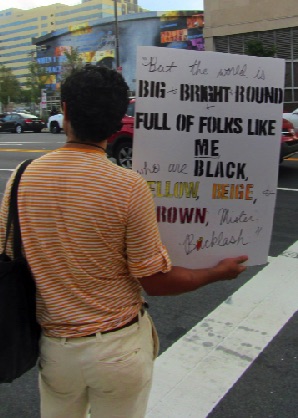 "But the world is
BIG - BRIGHT ROUND
FULL OF FOLKS LIKE
ME
who are BLACK,
YELLOW, BEIGE, &
BROWN, Mister
Backlash"